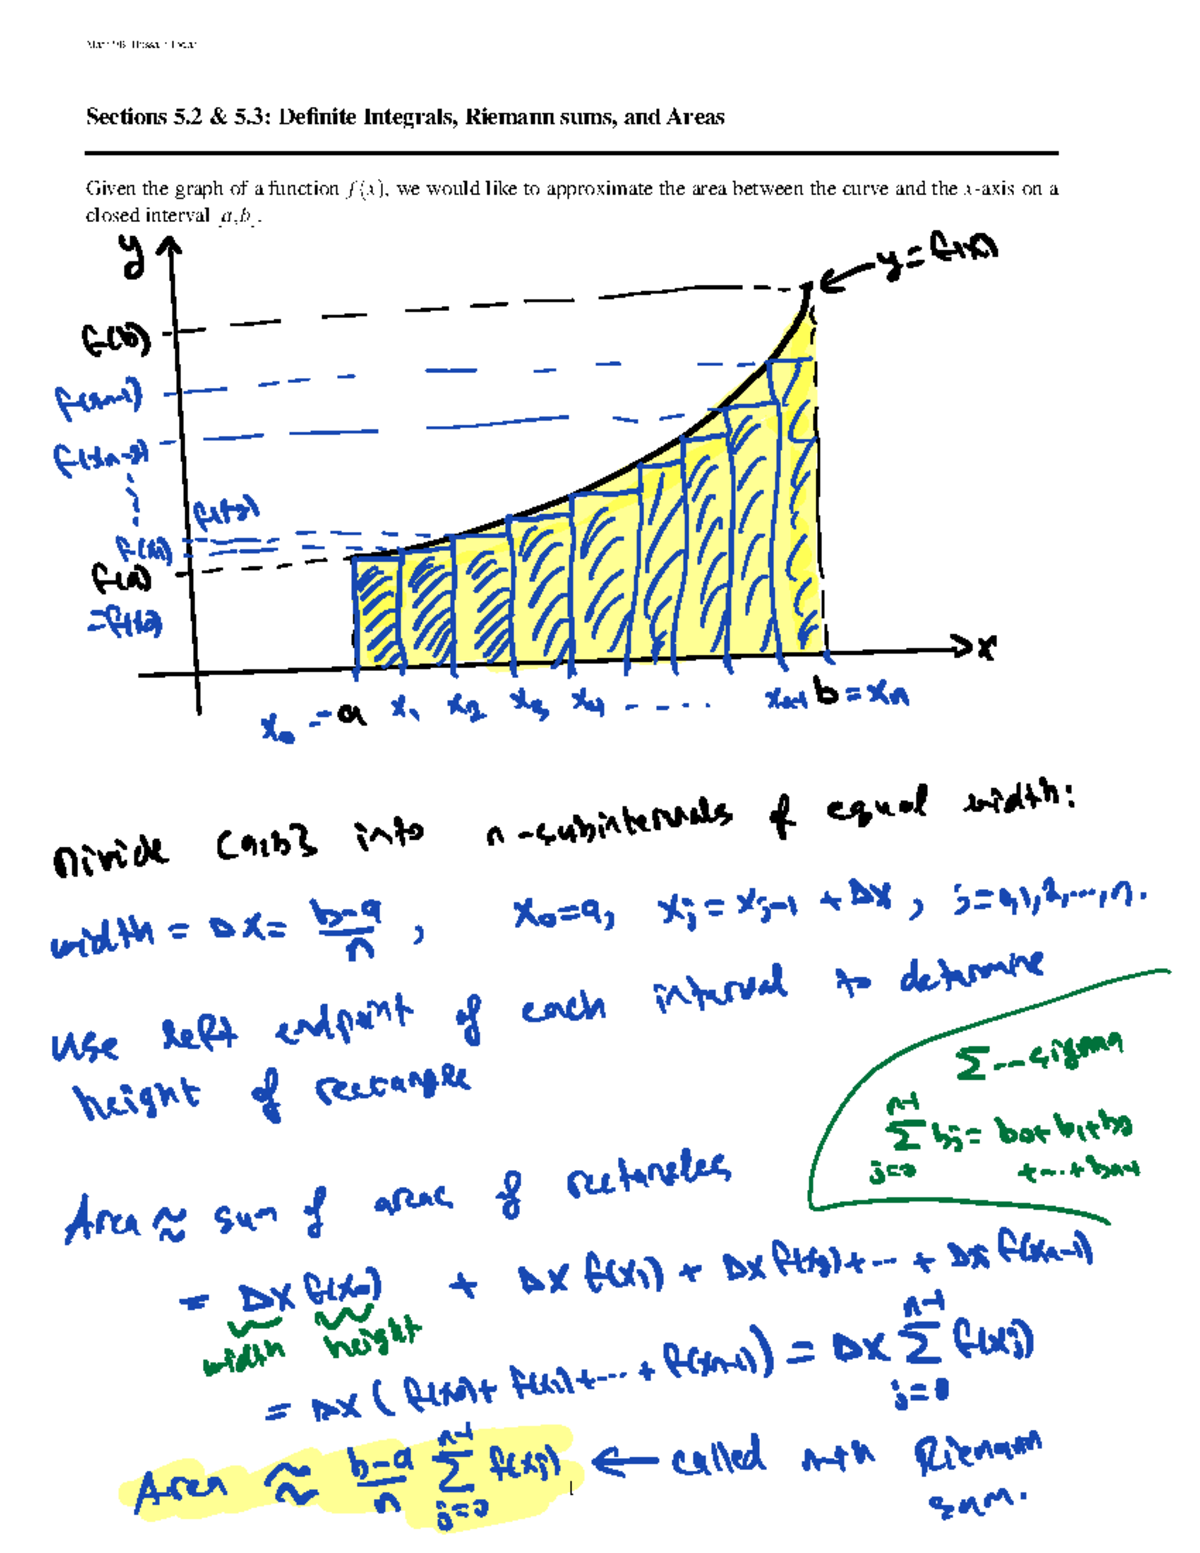 Sections 5.2 & 5.3: Definite Integrals, Riemann sums, and Areas
Given the graph of a function f(x), we would like to approximate the area between the curve and the x-axis on a
closed interval [a,b].
y
y=f(x)
f(b)
f(xn-1)
f(xn-2)
f(x2)
f(x1)
f(a)
=f(x0)
x
x0 = a x1 x2 x3 x4 ..... xn-1 b = xn
Divide [a,b] into n-subintervals of equal width:
width = Δx = (b-a)/n , x0=a, xj = xj-1 + Δx , j=0,1,2,...,n.
Use left endpoint of each interval to determine
height of rectangle
Σ -- sigma
n-1 Σ j=0 bj = b0+b1+b2
+...+bn-1
Area ≈ sum of areas of rectangles
= Δx f(x0) + Δx f(x1) + Δx f(x2) + ... + Δx f(xn-1)
width height
= Δx ( f(x0)+ f(x1)+... + f(xn-1) ) = Δx n-1 Σ j=0 f(xj)
Area ≈ (b-a)/n n-1 Σ j=0 f(xj) ← called n-th Riemann
sum.